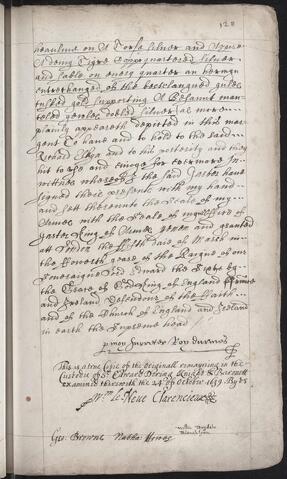 128
heaulme on A Torse silver and
A demy Tigre quartered silver
and sable on every quarter an herson
enterchanged of the
tusked gold supporting A
gewles dobled silver as more
plainly appeareth depicted in this mar-
gent To have and to hold to the said
Richard and to his posterity and they
hit to use and enioye for evermore In
witnes whereof I the said Garter have
signed these presents with my hand
and sett therunto the Seale of my
Armes with the Seale of my office of
Garter King of Armes yeven and granted
at London the daie of March in
the fowerth yeare of the Raigne of our
Soveraigne Lord Edward the Sixte by
the Grace of God King of England France
and Ireland Defendour of the Faith
and of the Church of England and Ireland
in earth the Supreme head
p moy Garter Roy darmes
This is a true Copie of the originall remayning in the
Custodie of Sr. Edward Dering Knight & Baronett
examined therewith the 24th of October 1639. By us
Wm. le Neve Clarenceux
Geo: Browne